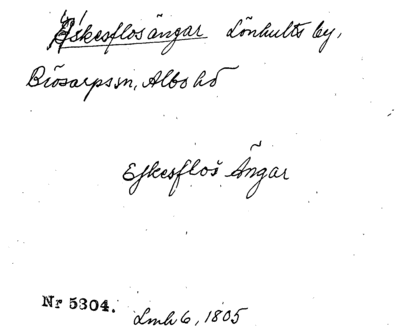 Eskesflosängar Lönhults by,
Brösarps sn, Albo hd
Ejkesfloš Ängar
Nr 5304.
Lmh 6, 1805